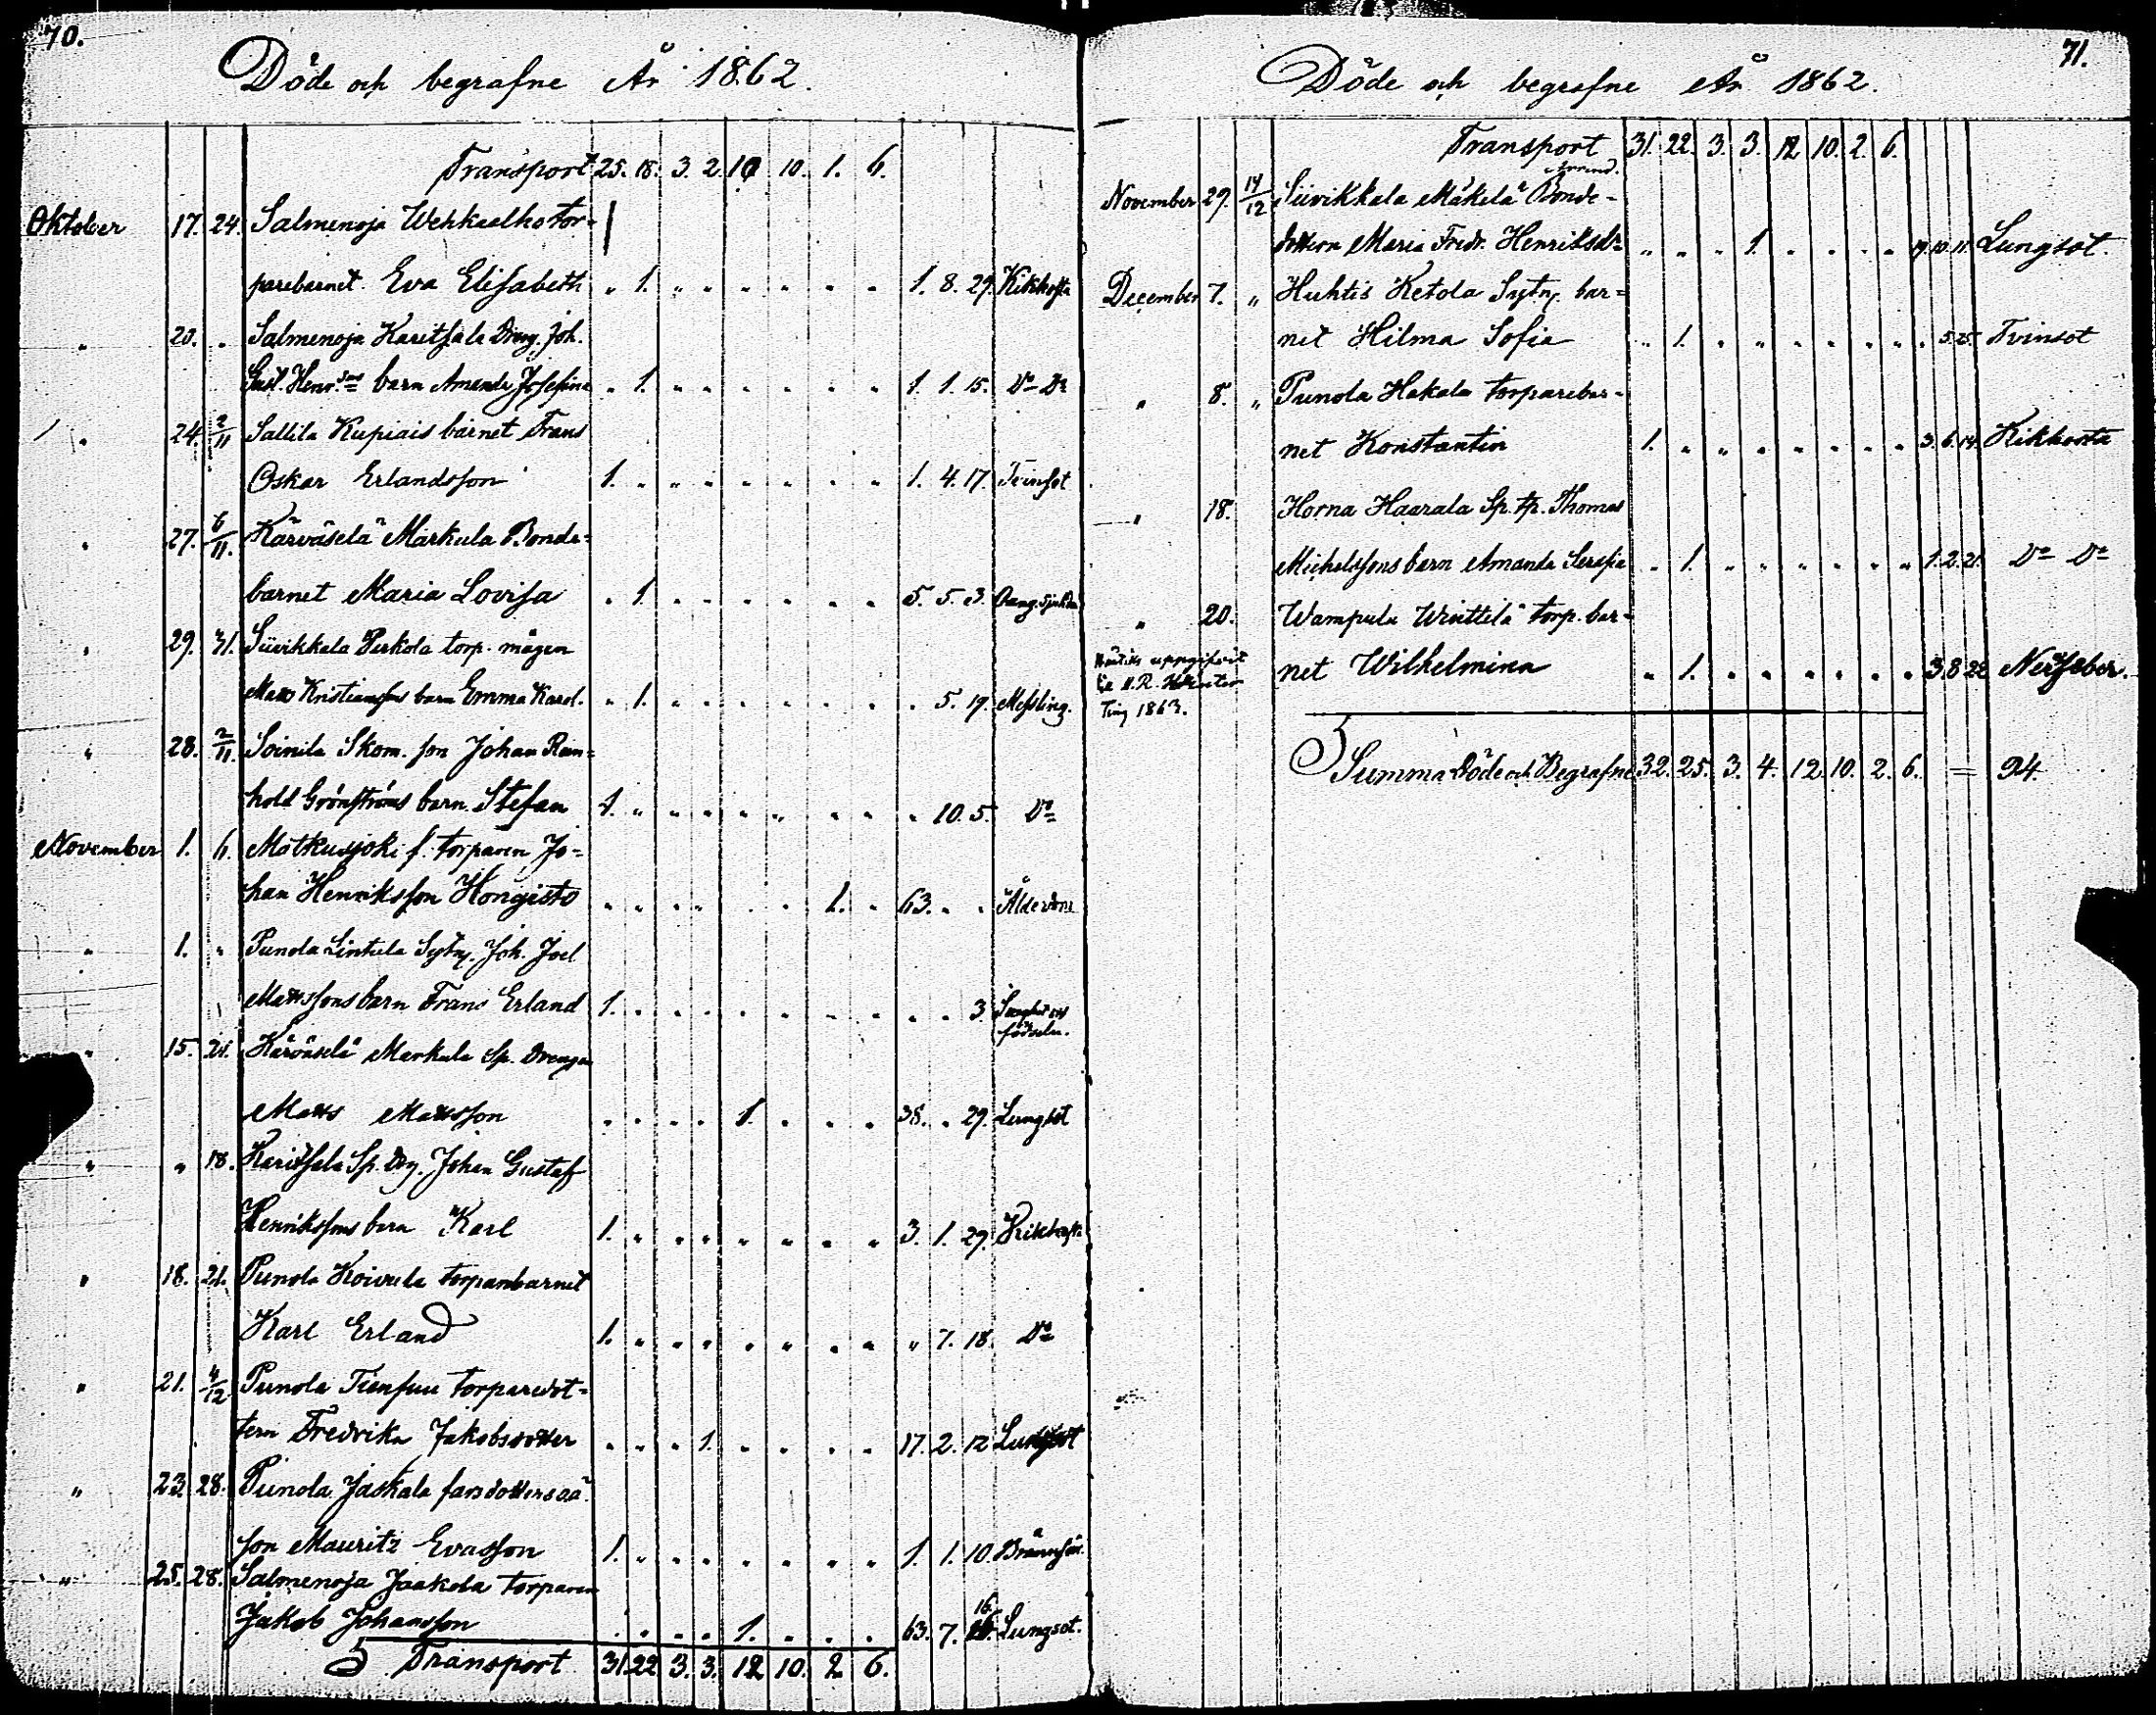 70.
Döde och begrafne År 1862.
Transport 25. 18. 3. 2. 10 10. 1. 6.
Oktober 17. 24. Salmenoja Wehkaalho tor-
parebarnet. Eva Elisabeth " 1. " " " " " " 1. 8. 29. Kikhosta
" 20. " Salmenoja Karitsala Dräng. Joh.
Gust. Henr.sons barn Amanda Josefina " 1. " " " " " " 1. 1. 15. Do Do
" 24. 2/11 Sallila Kupiais barnet Frans
Oskar Erlandsson 1. " " " " " " " 1. 4. 17. Tvinsot
" 27. 6/11. Kärväselä Markula Bonde-
barnet Maria Lovisa " 1. " " " " " " 5. 5. 3.
" 29. 31. Siivikkala Perkola torp. mågen
Matts Kristianssons barn Emma Karol. " 1. " " " " " " " 5. 19. Messling.
" 28. 2/11. Soinila Skom. son Johan Rein-
hold Grönströms barn Stefan 1. " " " " " " " " 10. 5. Do
November 1. 6. Mötkusjoki f. torparen Jo-
han Henriksson Hongisto " " " " " " 1. " 63. " " Ålderdom
" 1. " Punola Lintula Sytn. Joh. Joel
Mattssons barn Frans Erland 1. " " " " " " " " " 3.
födseln.
" 15. 21. Kärväselä Markula Sp. Drengen
Matts Mattsson " " " " 1. " " " 38. " 29. Lungsot
" " 18. Karitsala Sp. Drg. Johan Gustaf
Henrikssons barn Karl 1. " " " " " " " 3. 1. 29. Kikhosta
" 18. 21. Punola Koivula torparebarnet
Karl Erland 1. " " " " " " " " 7. 18. Do
" 21. 4/12 Punola Tiensuu torparedot-
tern Fredrika Jakobsdotter " " " 1. " " " " 17. 2. 12 Lungsot
" 23. 28. Punola Jaskala dotters oä.
son Mauritz Evasson 1. " " " " " " " 1. 1. 10.
" 25. 28. Salmenoja Jaakola torparen
Jakob Johansson " " " " 1. " " " 63. 7. 16. Lungsot.
Transport 31. 22 3. 3. 12 10. 2 6.
71.
Döde och begrafne År 1862.
Transport 31. 22. 3. 3. 12 10. 2. 6.
November 29. 14/12 Siivikkala Mäkelä Bonde-
dottern Maria Fredr. Henriksdr " " " 1. " " " " 19. 10. 11. Lungsot.
December 7. " Huhtis Ketola Sytn. bar-
net Hilma Sofia " 1. " " " " " " " 5. 25. Tvinsot
" 8. " Punola Hakala torparebar-
net Konstantin 1. " " " " " " " 3. 6. 14. Kikhosta
" 18. Horna Haarala Sp. tp. Thomas
Michelssons barn Amanda Serafia " 1. " " " " " " 1. 2. 21. Do Do
" 20. Wampula Winttilä torp. bar-
net Wilhelmina " 1. " " " " " " 3. 8. 22 Nerffeber.
Ting 1863.
Summa Döde och Begrafne 32. 25. 3. 4. 12 10. 2. 6. = 94.